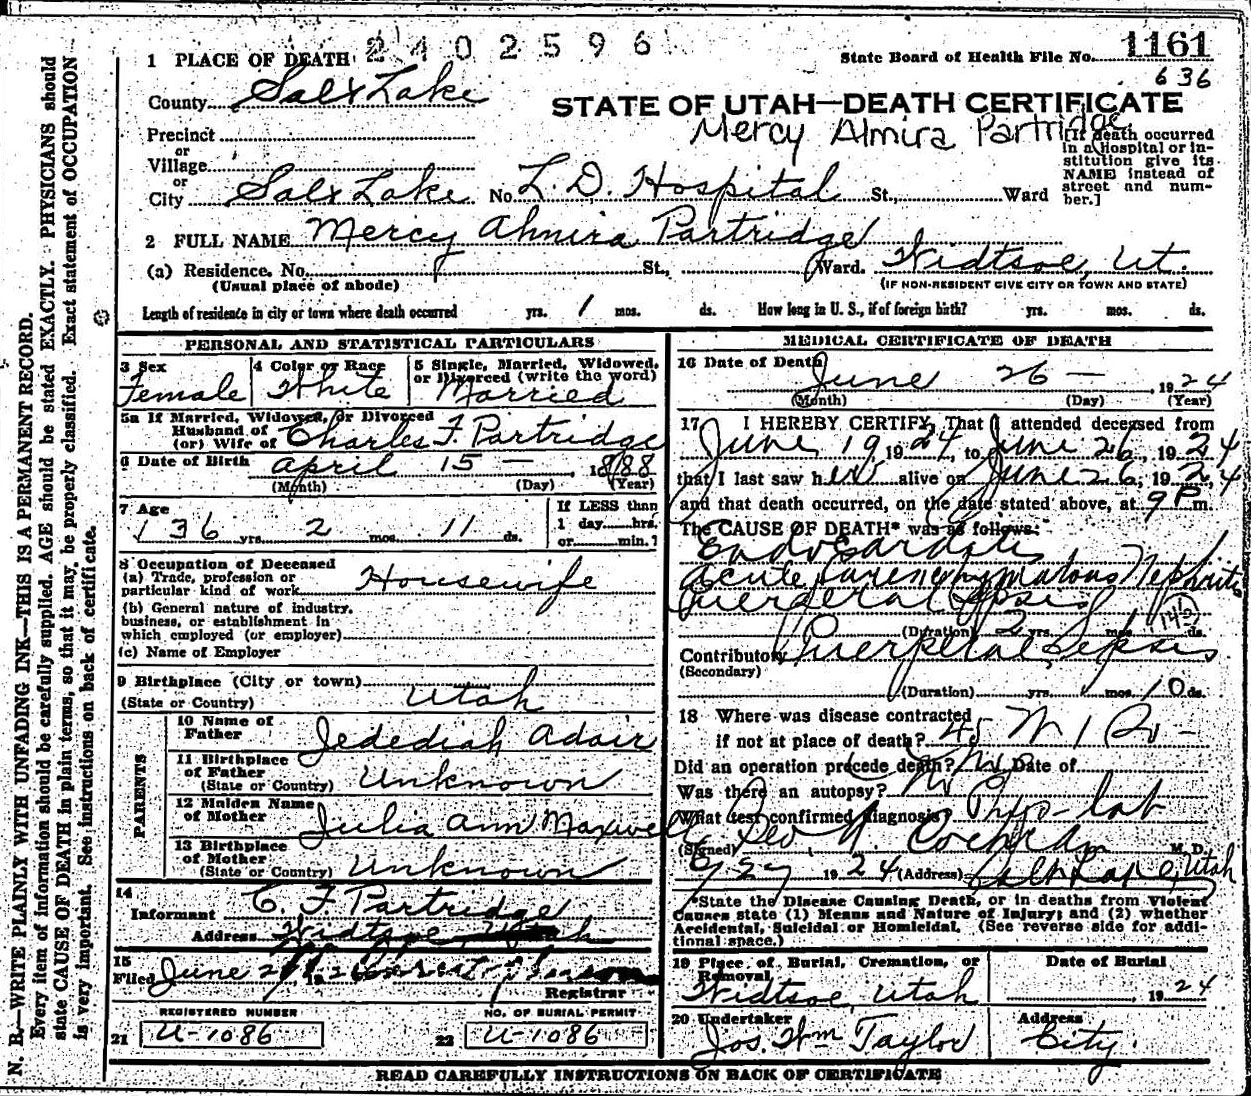 2402596
State Board of Health File No. 1161
636
1 PLACE OF DEATH
County Salt Lake
STATE OF UTAH—DEATH CERTIFICATE
Mercy Almira Partridge
Precinct
or
Village
or
City Salt Lake No. L. D. Hospital St., Ward
[If death occurred
in a Hospital or in-
stitution give its
NAME instead of
street and num-
ber.]
2 FULL NAME Mercy Almira Partridge
(a) Residence. No. St., Ward. Widtsoe, Ut.
(Usual place of abode) (IF NON-RESIDENT GIVE CITY OR TOWN AND STATE)
Length of residence in city or town where death occurred yrs. 1 mos. ds. How long in U. S., if of foreign birth? yrs. mos. ds.
PERSONAL AND STATISTICAL PARTICULARS
3 Sex
Female
4 Color or Race
White
5 Single, Married, Widowed,
or Divorced (write the word)
Married
5a If Married, Widowed, or Divorced
Husband of
(or) Wife of Charles F. Partridge
6 Date of Birth April 15 — , 1888
(Month) (Day) (Year)
7 Age
36 yrs. 2 mos. 11 ds.
If LESS than
1 day hrs.
or min.?
8 Occupation of Deceased
(a) Trade, profession or
particular kind of work Housewife
(b) General nature of industry,
business, or establishment in
which employed (or employer)
(c) Name of Employer
9 Birthplace (City or town)
(State or Country) Utah
PARENTS
10 Name of
Father Jedediah Adair
11 Birthplace
of Father
(State or Country) Unknown
12 Maiden Name
of Mother Julia Ann Maxwell
13 Birthplace
of Mother
(State or Country) Unknown
14
Informant C. F. Partridge
Address Widtsoe, Utah
15
Filed June
Registrar
REGISTERED NUMBER
21 U-1086
NO. OF BURIAL PERMIT
22 U-1086
MEDICAL CERTIFICATE OF DEATH
16 Date of Death
June 26 — , 1924
(Month) (Day) (Year)
17 I HEREBY CERTIFY, That I attended deceased from
June 19 1924, to June 26, 1924
that I last saw her alive on June 26, 1924
and that death occurred, on the date stated above, at 9 P m.
The CAUSE OF DEATH* was as follows:
Endocarditis
Acute Parenchymatous Nephritis
Puerperal Sepsis
(Duration) 2 yrs. mos. ds.
Contributory Puerperal Sepsis
(Secondary)
(Duration) yrs. mos. 10 ds.
18 Where was disease contracted
if not at place of death?
Did an operation precede death? No Date of
Was there an autopsy? No
What test confirmed diagnosis? Phys-lab
(Signed) Geo N. Cochran M. D.
6/27 1924 (Address) Salt Lake, Utah
*State the Disease Causing Death, or in deaths from Violent
Causes state (1) Means and Nature of Injury; and (2) whether
Accidental, Suicidal or Homicidal. (See reverse side for addi-
tional space.)
19 Place of Burial, Cremation, or
Removal
Widtsoe, Utah
Date of Burial
, 1924
20 Undertaker
Jos. Wm Taylor
Address
City.
READ CAREFULLY INSTRUCTIONS ON BACK OF CERTIFICATE
N. B.—WRITE PLAINLY WITH UNFADING INK—THIS IS A PERMANENT RECORD.
Every item of information should be carefully supplied. AGE should be stated EXACTLY. PHYSICIANS should
state CAUSE OF DEATH in plain terms, so that it may be properly classified. Exact statement of OCCUPATION
is very important. See instructions on back of certificate.